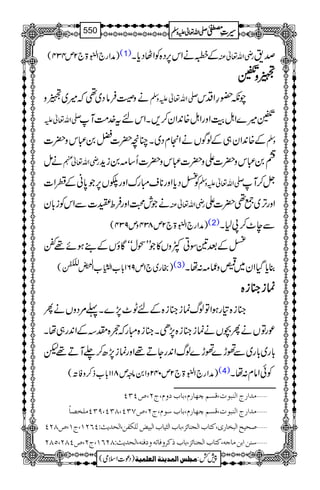 سیرتِ مصطفیٰ صلی اللہ تعالیٰ علیہ وسلم
550
صدیق رضی اللہ تعالیٰ عنہ کے خطبہ نے اس پردہ کو اٹھا دیا۔ (1) (مدارج النبوۃ ج۲ ص۴۳۴)
تجہیز و تکفین
چونکہ حضورِ اقدس صلی اللہ تعالیٰ علیہ وسلم نے وصیت فرما دی تھی کہ میری تجہیز و
تکفین میرے اہل بیت اور اہل خاندان کریں۔ اس لئے یہ خدمت آپ صلی اللہ تعالیٰ علیہ
وسلم کے خاندان ہی کے لوگوں نے انجام دی۔ چنانچہ حضرت فضل بن عباس و حضرت
قثم بن عباس و حضرت علی و حضرت عباس و حضرت اُسامہ بن زید رضی اللہ تعالیٰ عنہم نے مل
جل کر آپ صلی اللہ تعالیٰ علیہ وسلم کو غسل دیا اور ناف مبارک اور پلکوں پر جو پانی کے قطرات
اور تری جمع تھی حضرت علی رضی اللہ تعالیٰ عنہ نے جوشِ محبت اور فرطِ عقیدت سے اس کو زبان
سے چاٹ کر پی لیا۔ (2) (مدارج النبوۃ ج۲ ص۴۳۸ و ص۴۳۹)
غسل کے بعد تین سوتی کپڑوں کا جو ’’سحول‘‘ گاؤں کے بنے ہوئے تھے کفن
بنایا گیا ان میں قمیص و عمامہ نہ تھا۔ (3) (بخاری ج۱ ص۱۶۹ باب الثیاب البیض للکفن)
نماز جنازہ
جنازہ تیار ہوا تو لوگ نماز جنازہ کے لئے ٹوٹ پڑے۔ پہلے مردوں نے پھر
عورتوں نے پھر بچوں نے نماز جنازہ پڑھی۔ جنازہ مبارکہ حجرہ مقدسہ کے اندر ہی تھا۔
باری باری سے تھوڑے تھوڑے لوگ اندر جاتے تھے اور نماز پڑھ کر چلے آتے تھے لیکن
کوئی امام نہ تھا۔ (4) (مدارج النبوۃ ج۲ ص۴۴۰ و ابن ماجہ ص۱۱۸ باب ذکر وفاتہ)
مدارج النبوت،قسم چہارم،باب دوم،ج۲،ص۴۳۴
مدارج النبوت،قسم چہارم،باب سوم،ج۲،ص۴۳۷،۴۳۸،۴۳۹ ملخصاً
صحیح البخاری،کتاب الجنائز،باب الثیاب البیض للکفن،الحدیث:۱۲۶۴،ج۱،ص۴۲۸
سنن ابن ماجہ،کتاب الجنائز،باب ذکر وفاتہ ودفنہ،الحدیث:۱۶۲۸،ج۲،ص۲۸۴،۲۸۵
پیش کش: مجلس المدینۃ العلمیۃ (دعوتِ اسلامی)